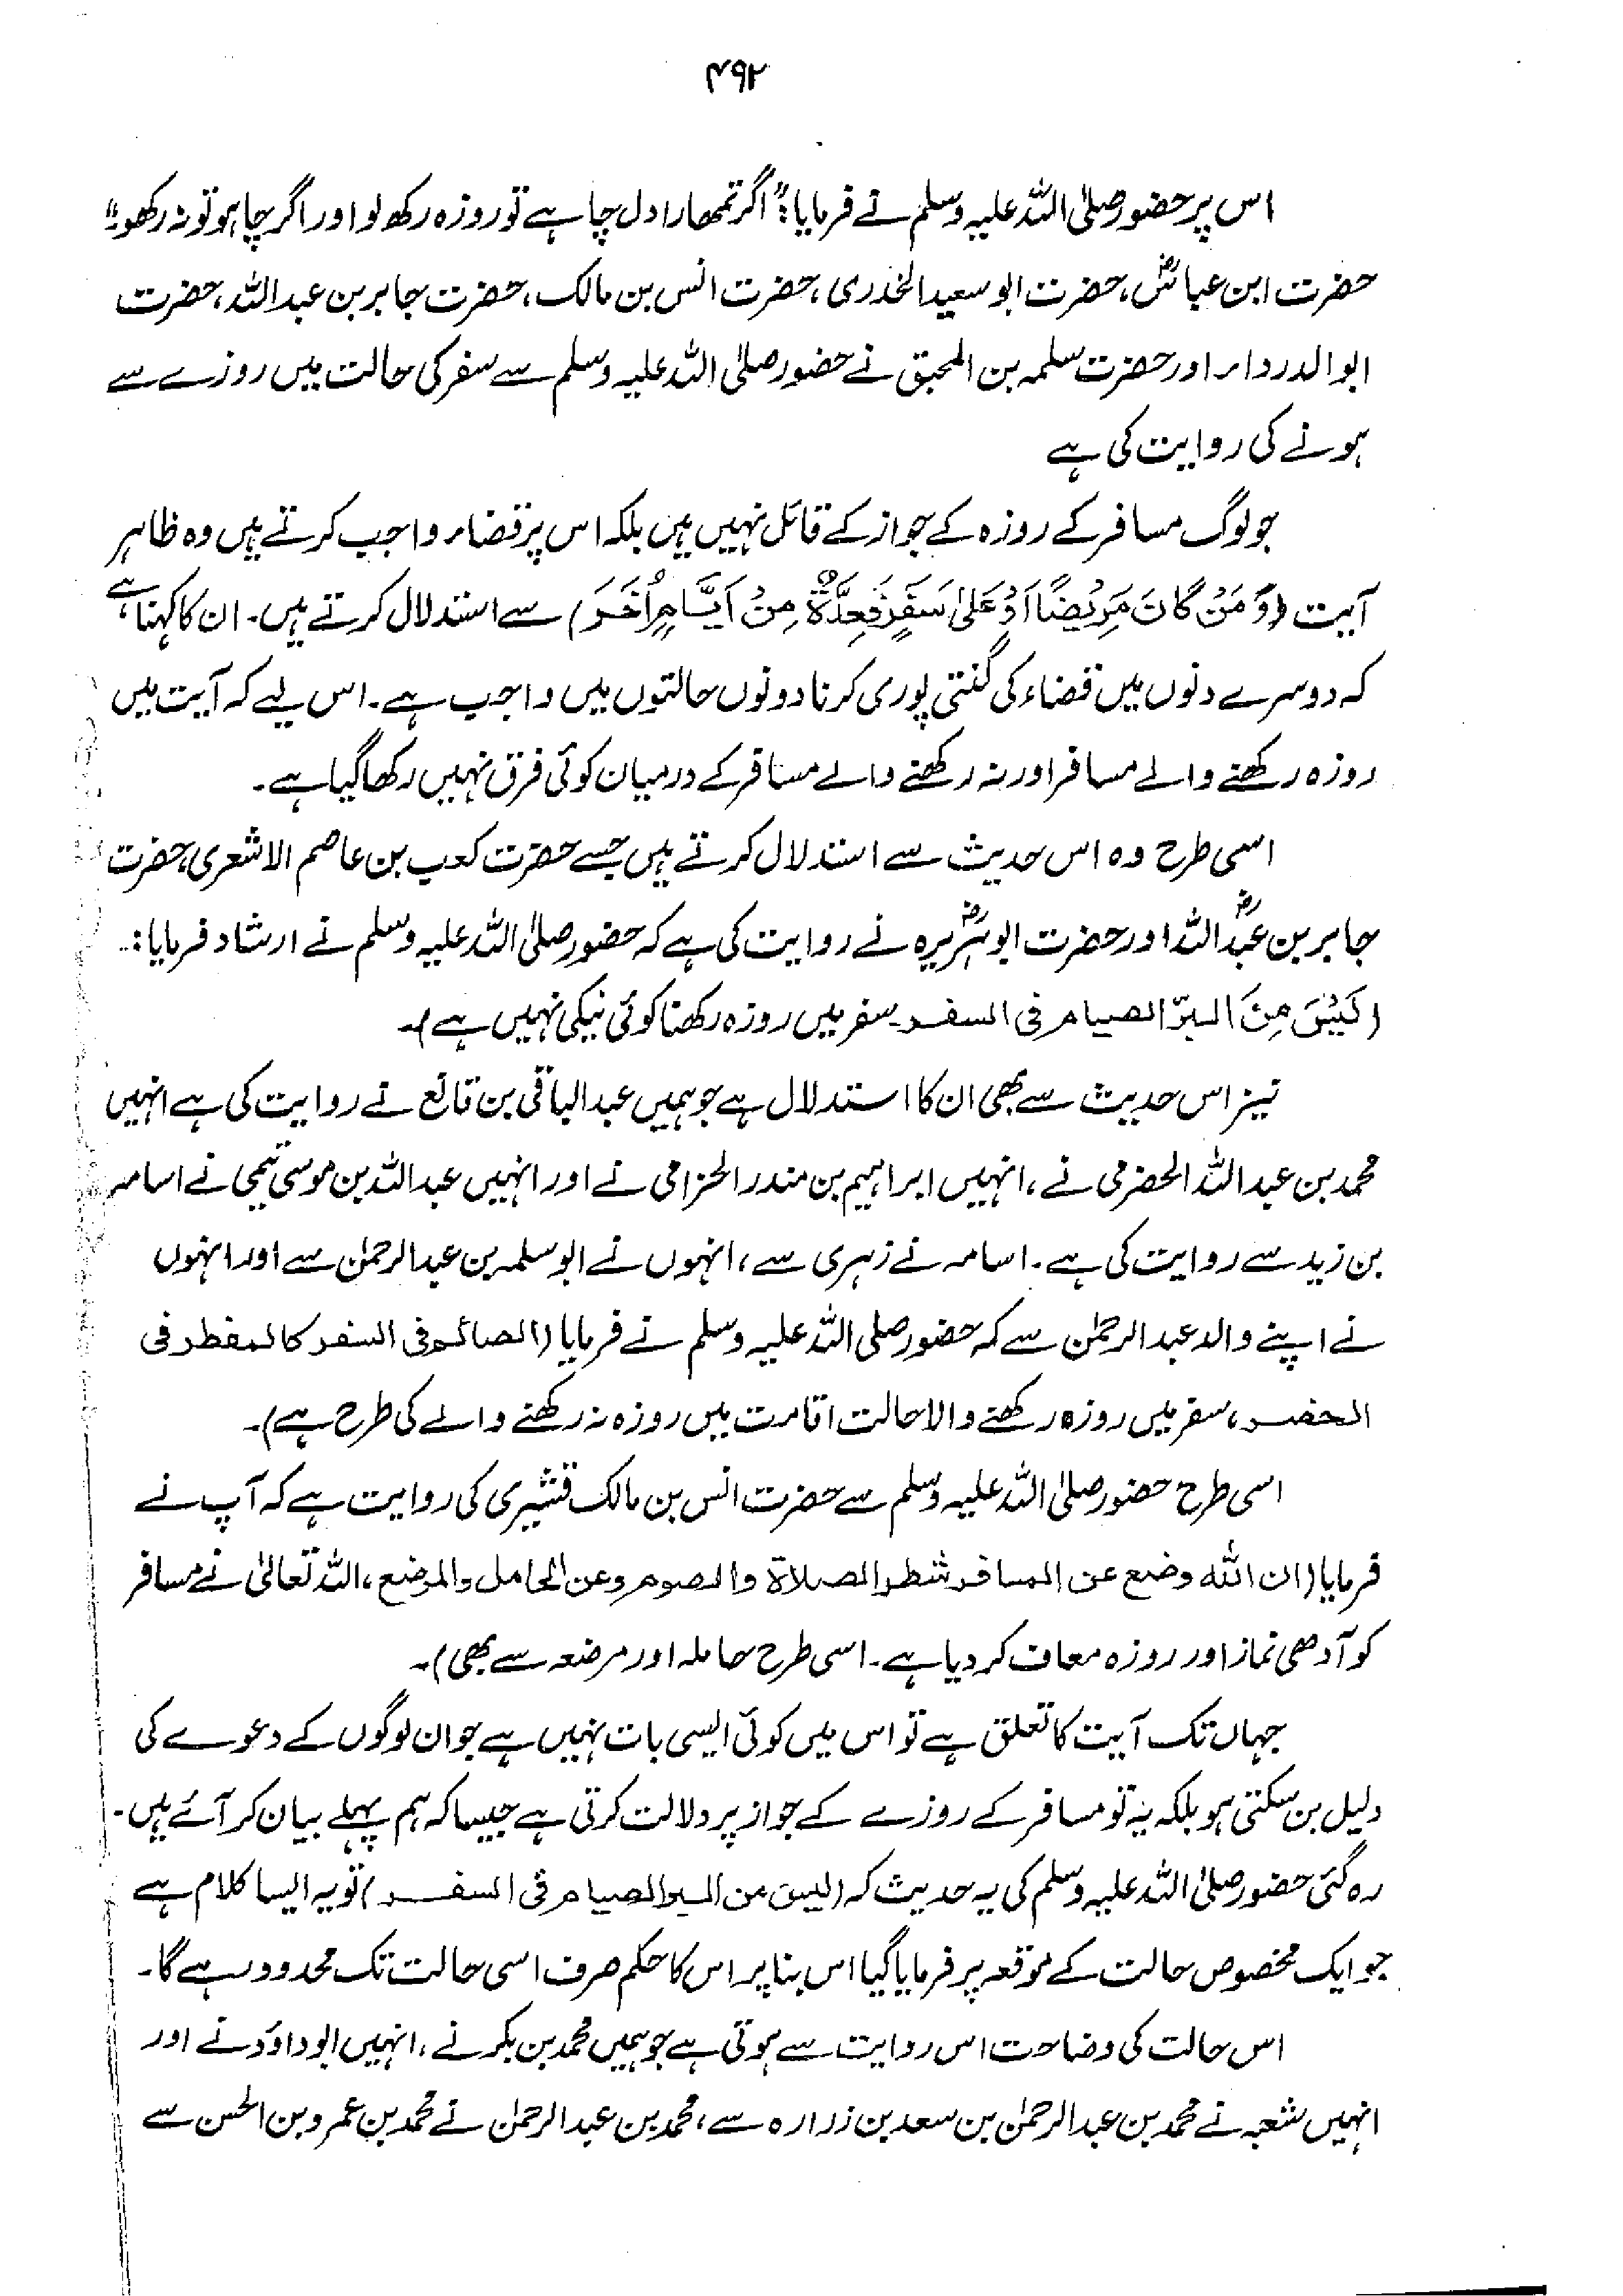 ۴۹۲
اس پر حضور صلی اللہ علیہ وسلم نے فرمایا: "اگر تمھارا دل چاہے تو روزہ رکھ لو اور اگر چاہو تو نہ رکھو"۔
حضرت ابن عباسؓ، حضرت ابو سعید الخدری، حضرت انس بن مالک، حضرت جابر بن عبداللہ، حضرت
ابو الدرداء اور حضرت سلمہ بن المحبق نے حضور صلی اللہ علیہ وسلم سے سفر کی حالت میں روزے سے
ہونے کی روایت کی ہے
جو لوگ مسافر کے روزہ کے جواز کے قائل نہیں ہیں بلکہ اس پر قضاء واجب کرتے ہیں وہ ظاہر
آیت (وَمَنْ كَانَ مَرِيْضًا اَوْ عَلٰى سَفَرٍ فَعِدَّةٌ مِنْ اَيَّامٍ اُخَرَ) سے استدلال کرتے ہیں۔ ان کا کہنا ہے
کہ دوسرے دنوں میں قضاء کی گنتی پوری کرنا دونوں حالتوں میں واجب ہے۔ اس لیے کہ آیت میں
روزہ رکھنے والے مسافر اور نہ رکھنے والے مسافر کے درمیان کوئی فرق نہیں رکھا گیا ہے۔
اسی طرح وہ اس حدیث سے استدلال کرتے ہیں جسے حضرت کعب بن عاصم الاشعری، حضرت
جابر بن عبداللہؓ اور حضرت ابوہریرہؓ نے روایت کی ہے کہ حضور صلی اللہ علیہ وسلم نے ارشاد فرمایا:
(لَيْسَ مِنَ البِرّ الصيام فى السفر۔ سفر میں روزہ رکھنا کوئی نیکی نہیں ہے)۔
نیز اس حدیث سے بھی ان کا استدلال ہے جو ہمیں عبدالباقی بن قانع نے روایت کی ہے انہیں
محمد بن عبداللہ الحضرمی نے، انہیں ابراہیم بن منذر الحزامی نے اور انہیں عبداللہ بن موسی تیمی نے اسامہ
بن زید سے روایت کی ہے۔ اسامہ نے زہری سے، انہوں نے ابو سلمہ بن عبدالرحمٰن سے اور انہوں
نے اپنے والد عبدالرحمٰن سے کہ حضور صلی اللہ علیہ وسلم نے فرمایا (الصائم فى السفر كالمفطر فى
الحضر، سفر میں روزہ رکھنے والا حالت اقامت میں روزہ نہ رکھنے والے کی طرح ہے)۔
اسی طرح حضور صلی اللہ علیہ وسلم سے حضرت انس بن مالک قشیری کی روایت ہے کہ آپ نے
فرمایا (ان الله وضع عن المسافر شطر الصلاة والصوم وعن الحامل والمرضع، اللہ تعالیٰ نے مسافر
کو آدھی نماز اور روزہ معاف کر دیا ہے۔ اسی طرح حاملہ اور مرضعہ سے بھی)۔
جہاں تک آیت کا تعلق ہے تو اس میں کوئی ایسی بات نہیں ہے جو ان لوگوں کے دعوے کی
دلیل بن سکتی ہو بلکہ یہ تو مسافر کے روزے کے جواز پر دلالت کرتی ہے جیسا کہ ہم پہلے بیان کر آئے ہیں۔
رہ گئی حضور صلی اللہ علیہ وسلم کی یہ حدیث کہ (ليس من البر الصيام فى السفر) تو یہ ایسا کلام ہے
جو ایک مخصوص حالت کے موقعہ پر فرمایا گیا اس بنا پر اس کا حکم صرف اسی حالت تک محدود رہے گا۔
اس حالت کی وضاحت اس روایت سے ہوتی ہے جو ہمیں محمد بن بکر نے، انہیں ابو داؤد نے اور
انہیں شعبہ نے محمد بن عبدالرحمٰن بن سعد بن زرارہ سے، محمد بن عبدالرحمٰن نے محمد بن عمرو بن الحسن سے